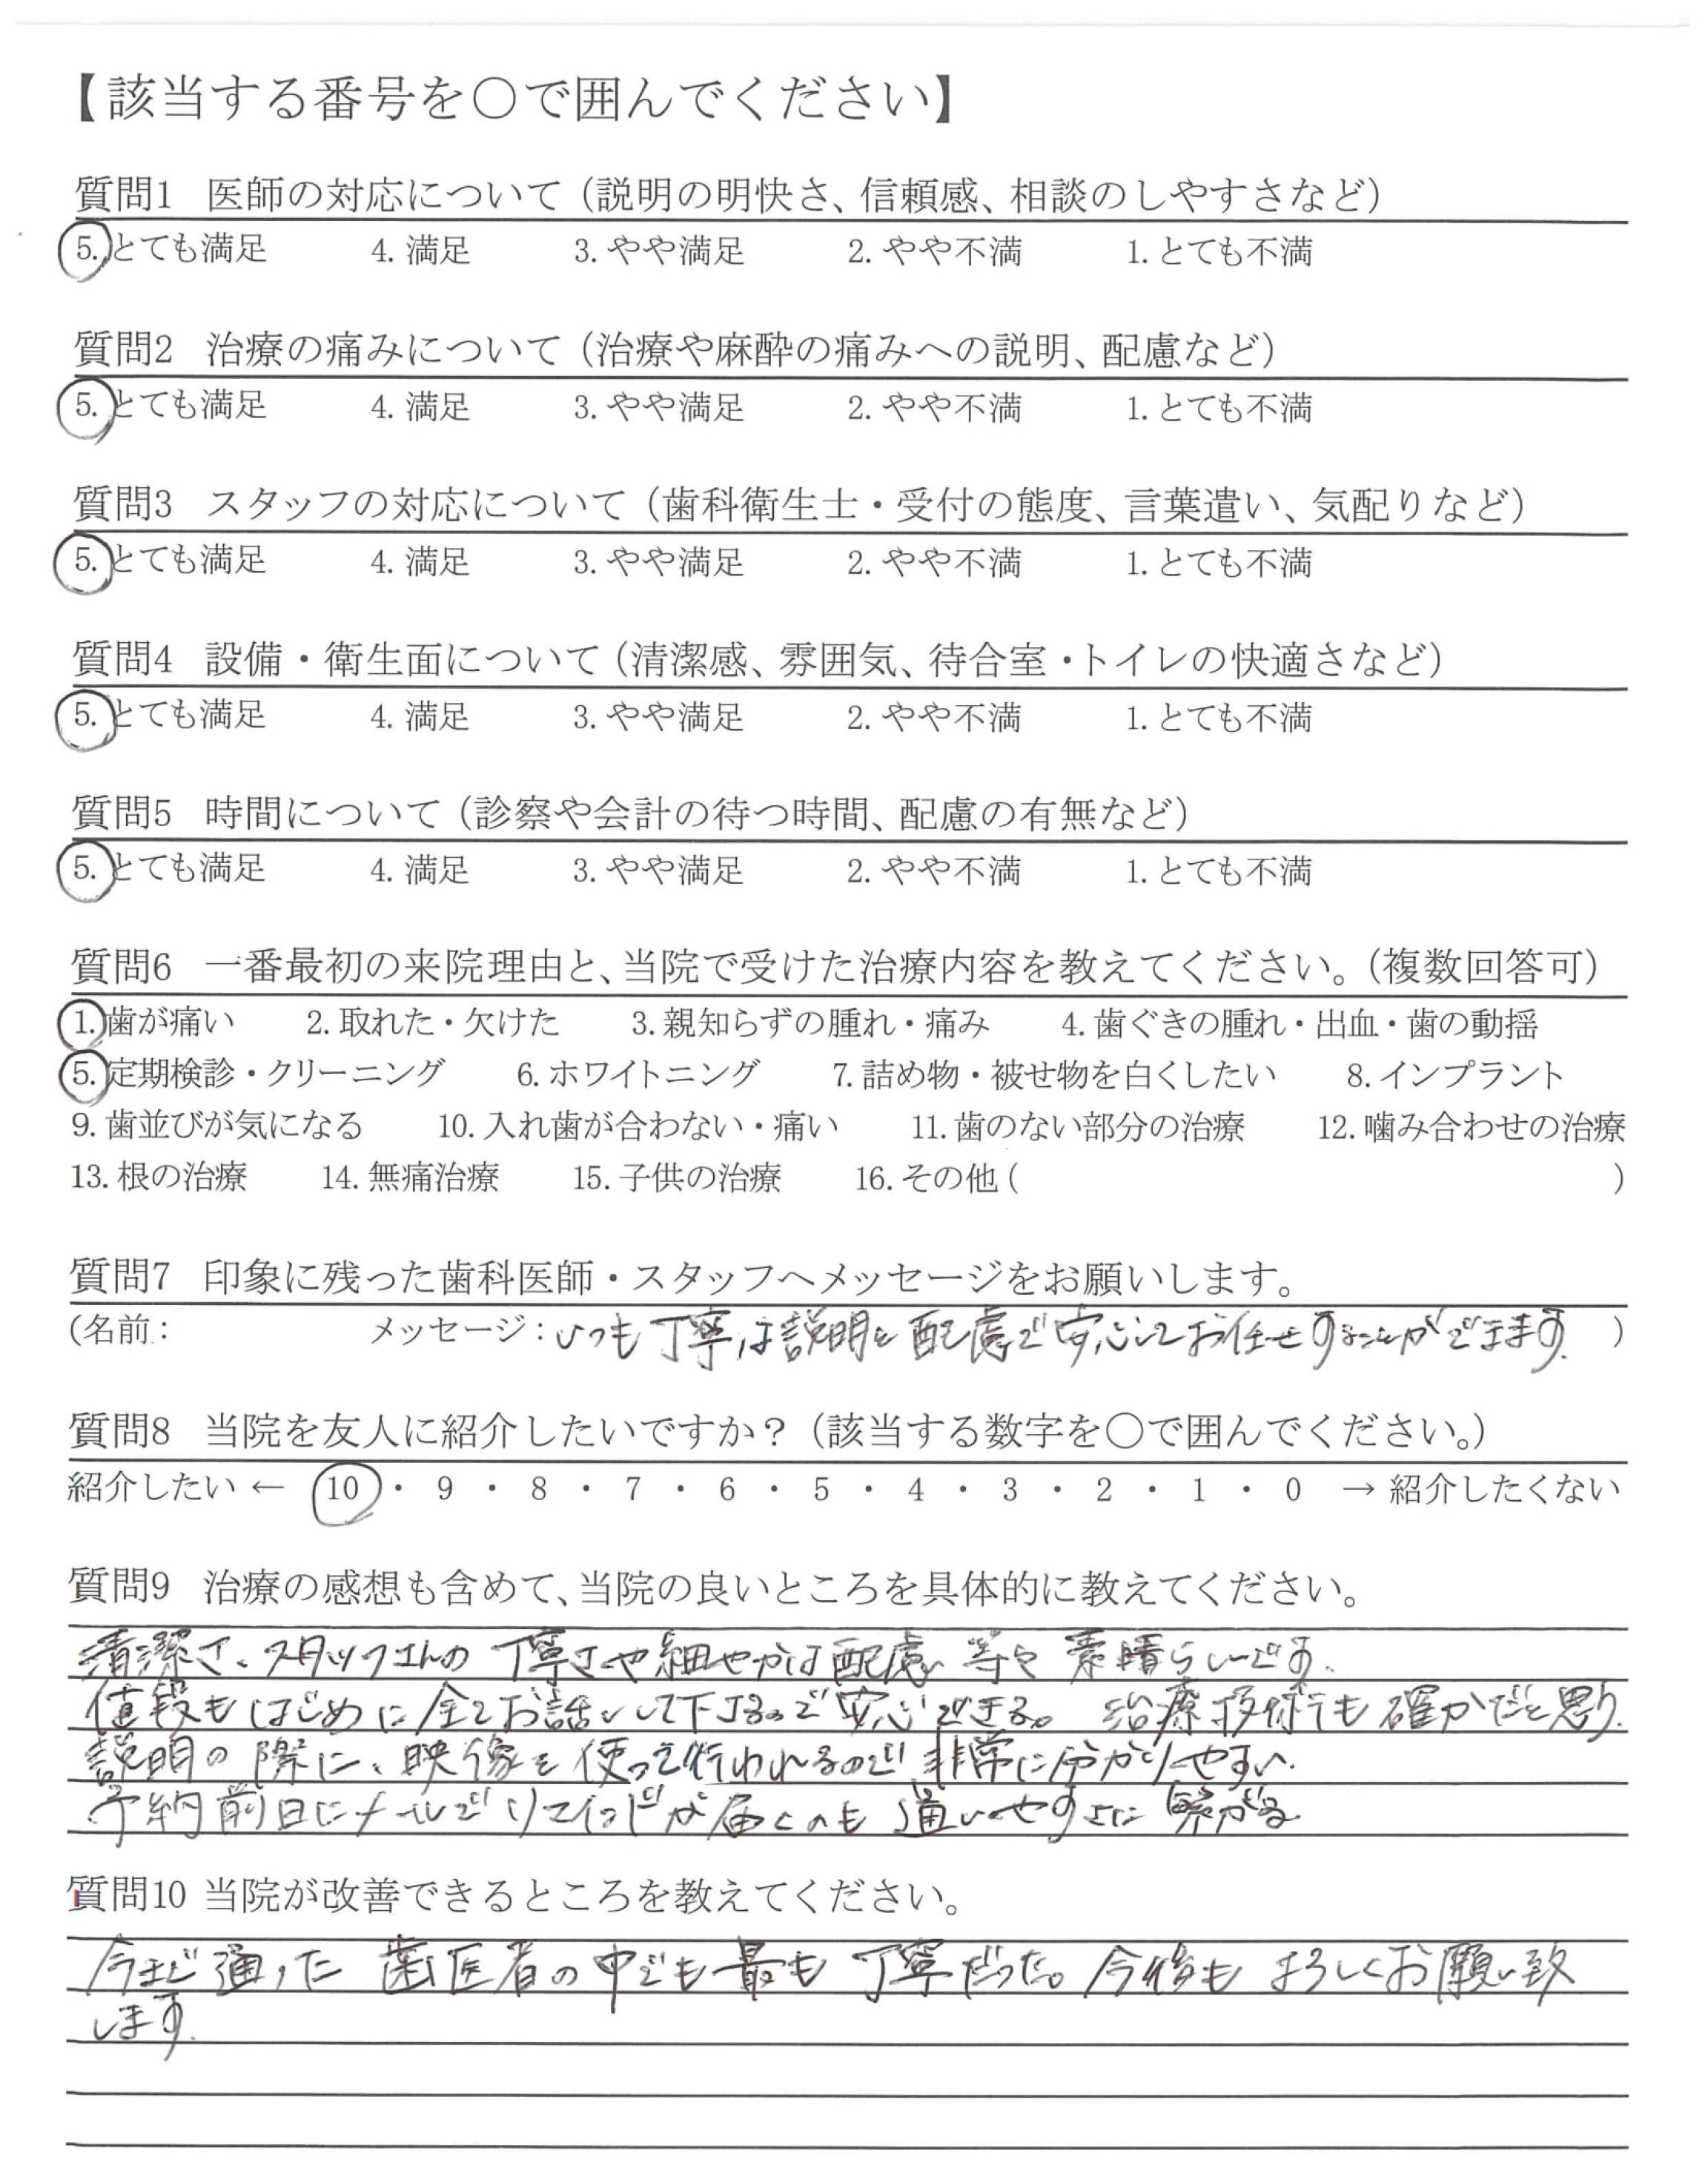 【該当する番号を○で囲んでください】
質問1 医師の対応について（説明の明快さ、信頼感、相談のしやすさなど）
5. とても満足 4. 満足 3. やや満足 2. やや不満 1. とても不満
質問2 治療の痛みについて（治療や麻酔の痛みへの説明、配慮など）
5. とても満足 4. 満足 3. やや満足 2. やや不満 1. とても不満
質問3 スタッフの対応について（歯科衛生士・受付の態度、言葉遣い、気配りなど）
5. とても満足 4. 満足 3. やや満足 2. やや不満 1. とても不満
質問4 設備・衛生面について（清潔感、雰囲気、待合室・トイレの快適さなど）
5. とても満足 4. 満足 3. やや満足 2. やや不満 1. とても不満
質問5 時間について（診察や会計の待つ時間、配慮の有無など）
5. とても満足 4. 満足 3. やや満足 2. やや不満 1. とても不満
質問6 一番最初の来院理由と、当院で受けた治療内容を教えてください。（複数回答可）
1. 歯が痛い 2. 取れた・欠けた 3. 親知らずの腫れ・痛み 4. 歯ぐきの腫れ・出血・歯の動揺
5. 定期検診・クリーニング 6. ホワイトニング 7. 詰め物・被せ物を白くしたい 8. インプラント
9. 歯並びが気になる 10. 入れ歯が合わない・痛い 11. 歯のない部分の治療 12. 噛み合わせの治療
13. 根の治療 14. 無痛治療 15. 子供の治療 16. その他（ ）
質問7 印象に残った歯科医師・スタッフへメッセージをお願いします。
（名前： メッセージ：いつも丁寧な説明と配慮で安心してお任せすることができます。）
質問8 当院を友人に紹介したいですか？（該当する数字を○で囲んでください。）
紹介したい ← 10 ・ 9 ・ 8 ・ 7 ・ 6 ・ 5 ・ 4 ・ 3 ・ 2 ・ 1 ・ 0 → 紹介したくない
質問9 治療の感想も含めて、当院の良いところを具体的に教えてください。
清潔さ、スタッフさんの丁寧さや細やかな配慮 等々 素晴らしいです。
値段もはじめに全てお話しして下さるので安心できる。 治療技術も確かだと思う。
説明の際に、映像を使って行われるので非常に分かりやすい。
予約前日にメールでリマインドが届くのも通いやすさに繋がる
質問10 当院が改善できるところを教えてください。
今まで通った歯医者の中でも最も丁寧だった。今後もよろしくお願い致
します。